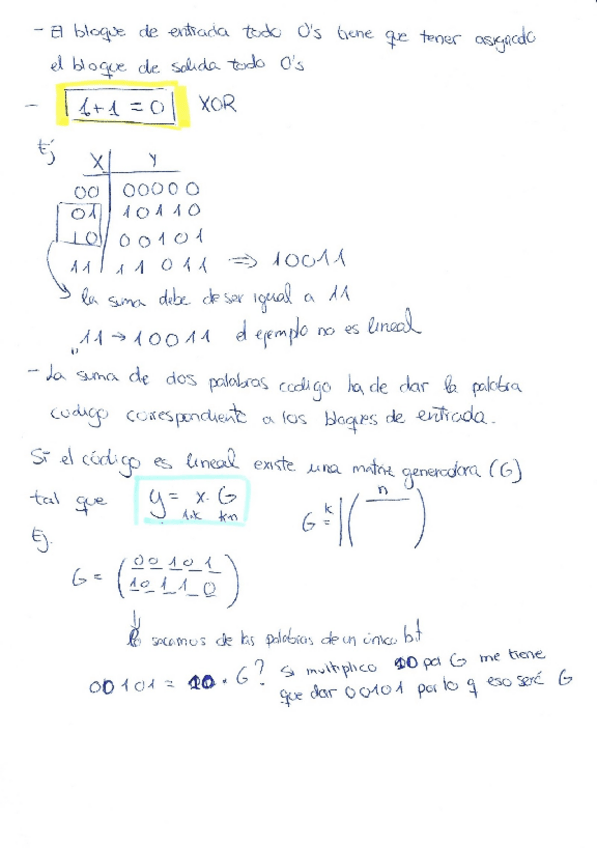 - El bloque de entrada todo 0's tiene que tener asignado
el bloque de salida todo 0's
- 1+1 = 0 XOR
Ej
X | Y
00 | 00000
01 | 10110
10 | 00101
11 | 11011 => 10011
la suma debe de ser igual a 11
"11 → 10011 el ejemplo no es lineal
- La suma de dos palabras codigo ha de dar la palabra
codigo correspondiente a los bloques de entrada.
Si el código es lineal existe una matriz generadora (G)
tal que y = x · G
1·k k·n
G = k | ( n )
Ej.
G = ( 00101
10110 )
↓
sacamos de las palabras de un único bit
00101 = 10 · G? Si multiplico 10 por G me tiene
que dar 00101 por lo q eso será G